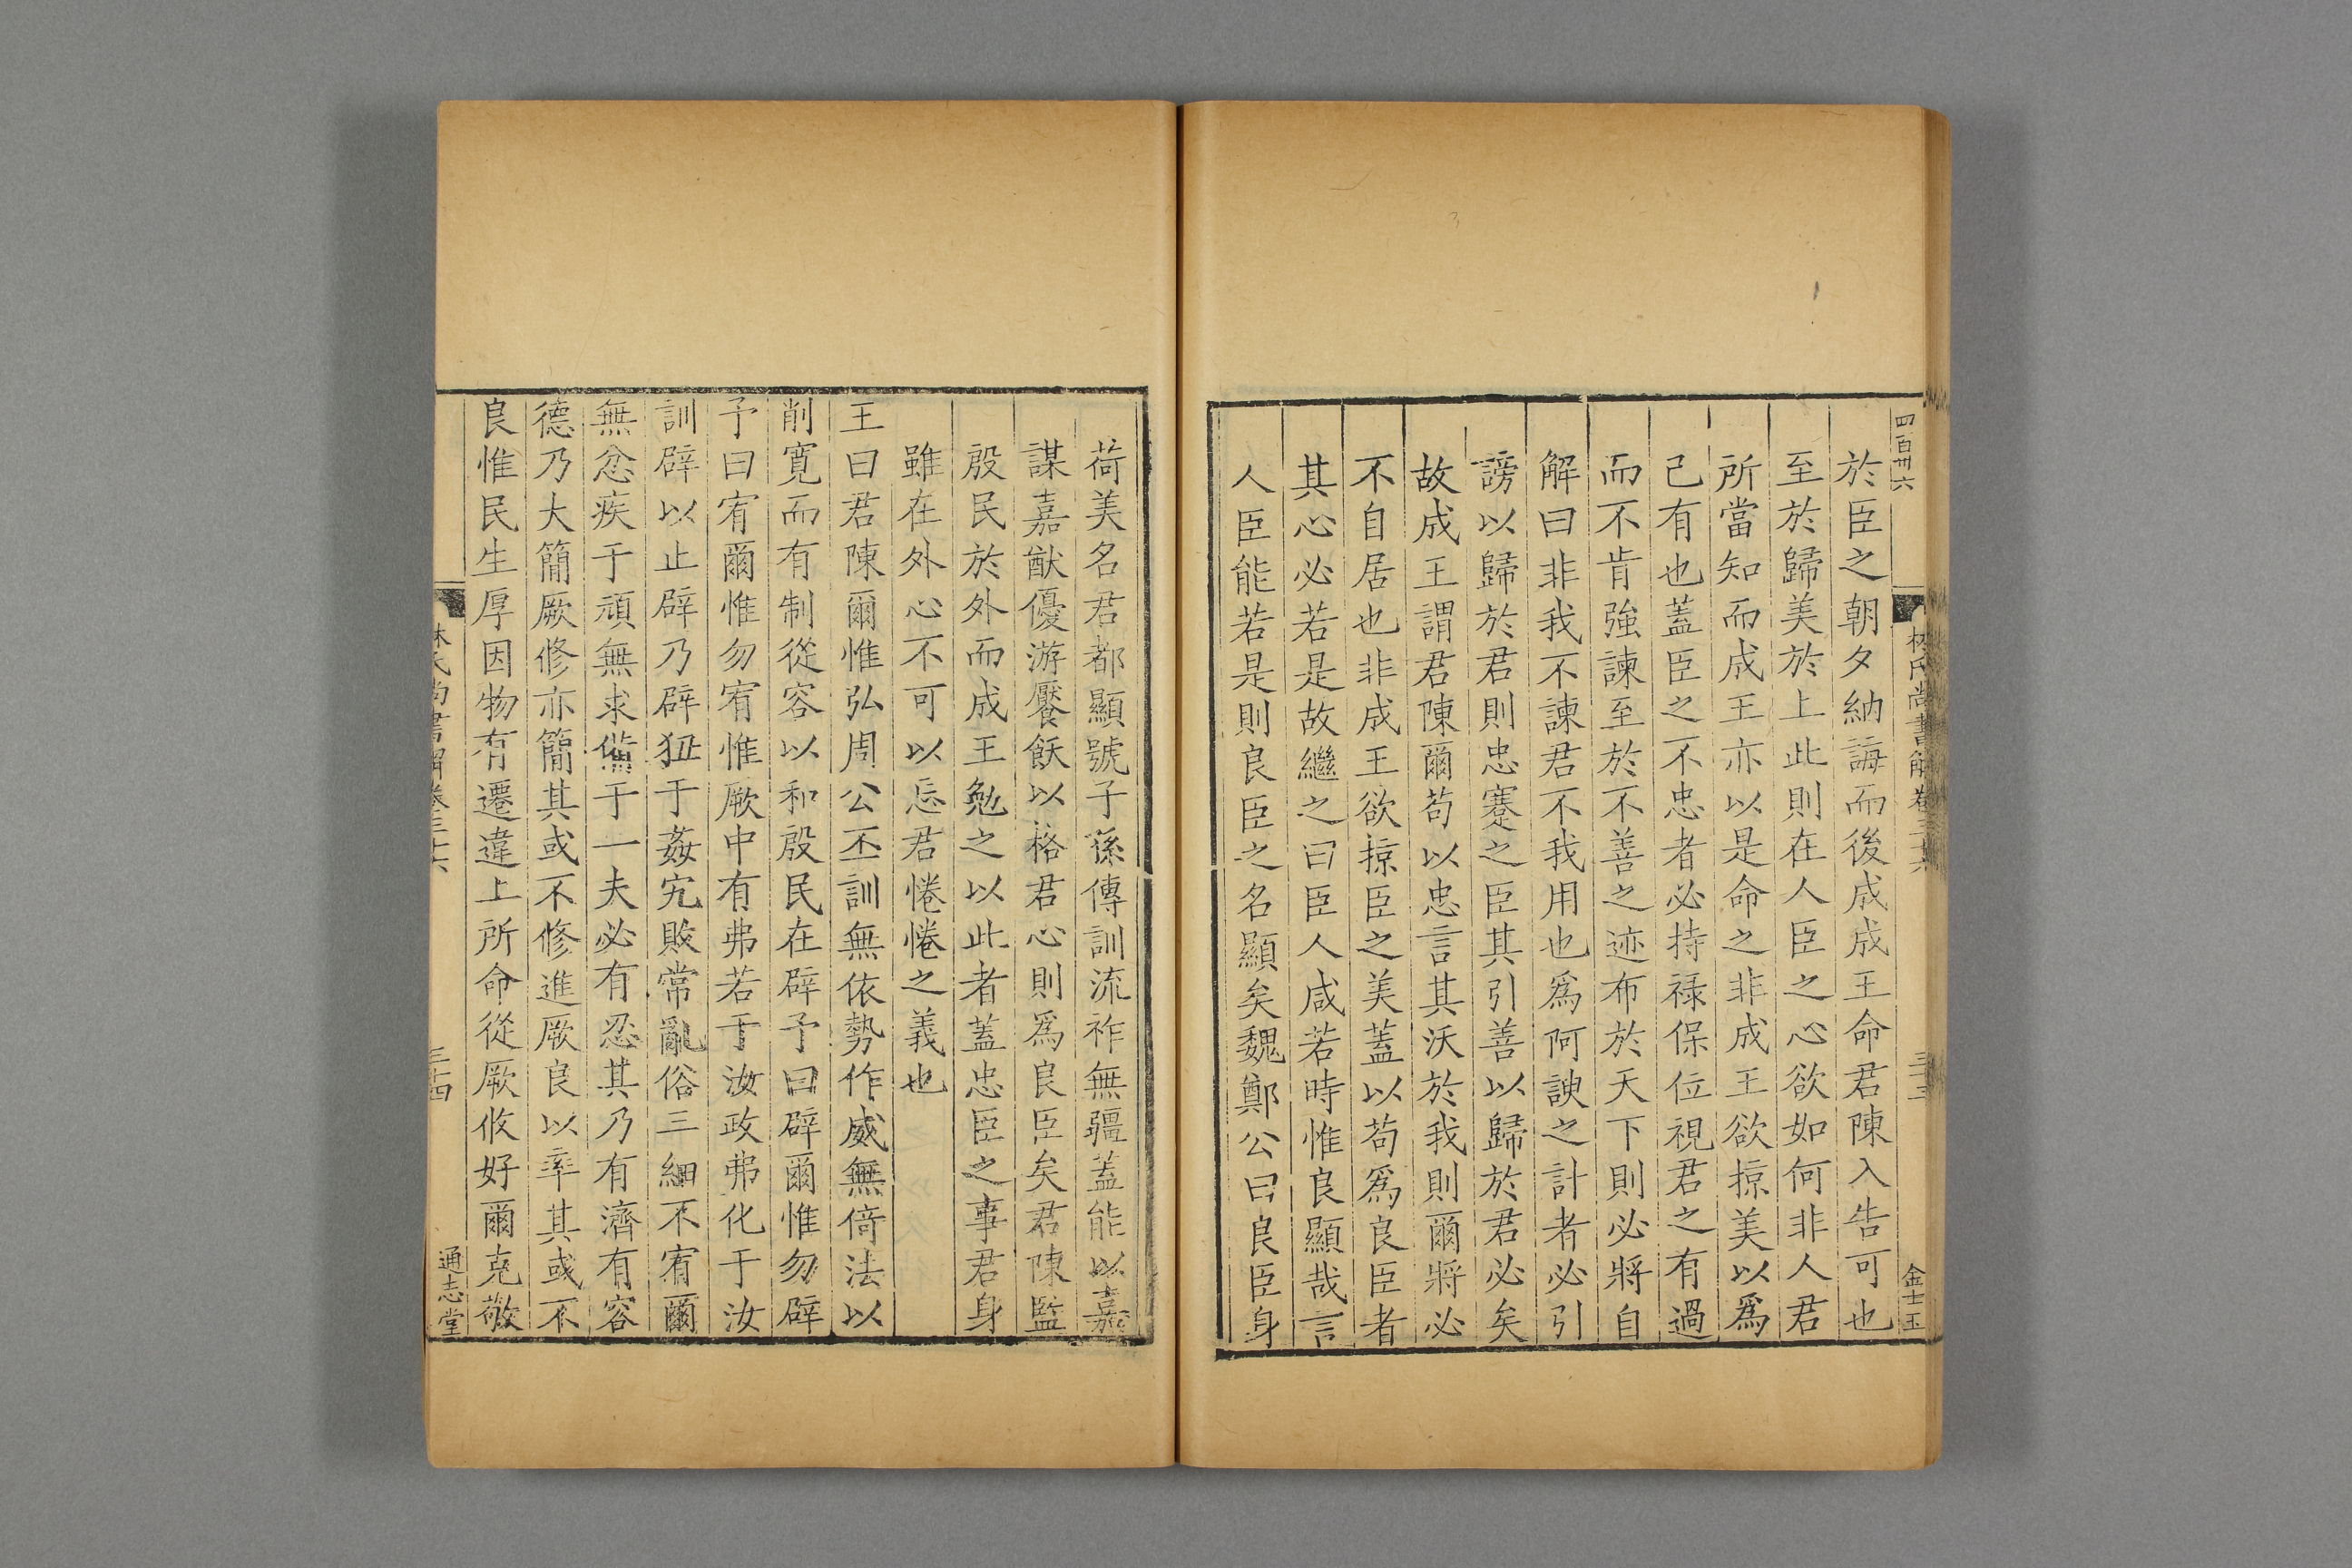 四百卅六
林氏尚書解卷三十六
三十三
金士玉
於臣之朝夕納誨而後成成王命君陳入告可也
至於歸美於上此則在人臣之心欲如何非人君
所當知而成王亦以是命之非成王欲掠美以爲
己有也蓋臣之不忠者必持祿保位視君之有過
而不肯強諫至於不善之迹布於天下則必將自
解曰非我不諫君不我用也爲阿諛之計者必引
謗以歸於君則忠蹇之臣其引善以歸於君必矣
故成王謂君陳爾苟以忠言其沃於我則爾將必
不自居也非成王欲掠臣之美蓋以苟爲良臣者
其心必若是故繼之曰臣人咸若時惟良顯哉言
人臣能若是則良臣之名顯矣魏鄭公曰良臣身
荷美名君都顯號子孫傳訓流祚無疆蓋能以嘉
謀嘉猷優游饜飫以格君心則爲良臣矣君陳監
殷民於外而成王勉之以此者蓋忠臣之事君身
雖在外心不可以忘君惓惓之義也
王曰君陳爾惟弘周公丕訓無依勢作威無倚法以
削寬而有制從容以和殷民在辟予曰辟爾惟勿辟
予曰宥爾惟勿宥惟厥中有弗若于汝政弗化于汝
訓辟以止辟乃辟狃于姦宄敗常亂俗三細不宥爾
無忿疾于頑無求備于一夫必有忍其乃有濟有容
德乃大簡厥修亦簡其或不修進厥良以率其或不
良惟民生厚因物有遷違上所命從厥攸好爾克敬
林氏尚書解卷三十六
三十四
通志堂